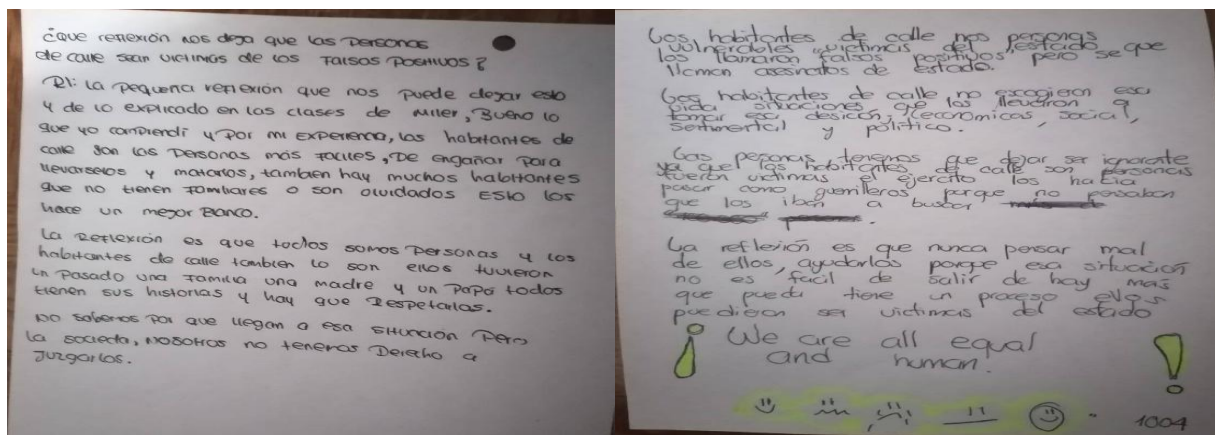 ¿Que reflexión nos deja que las personas
de calle sean victimas de los Falsos Positivos?
R1: La pequeña reflexión que nos puede dejar esto
y de lo explicado en las clases de Miler, Bueno lo
que yo comprendí y por mi experiencia, las habitantes de
calle son las personas más faciles, De engañar para
llevarselos y matarlos, tambien hay muchos habitantes
que no tienen familiares o son olvidados Esto los
hace un mejor Blanco.
La Reflexión es que todos somos personas y los
habitantes de calle tambien lo son ellos tuvieron
un pasado una familia una madre y un papá todos
tienen sus historias y hay que Respetarlas.
No sabemos por que llegan a esa situación Pero
la socieda, nosotros no tenemos Derecho a
Juzgarlos.
Los habitantes de calle nos personas
vulnerables victimas del estado que
los llamaron falsos positivos pero se
llaman asesinatos de estado.
Los habitantes de calle no escogieron esa
vida situaciones que los llevaron a
tomar esa desición, economicas, social,
sentimental y político.
Las personas tenemos que dejar ser ignorante
ya que los habitantes de calle son personas
fueron victimas el ejercito los hacia
pasar como guerrilleros porque no pensaban
que los iban a buscar
La reflexión es que nunca pensar mal
de ellos, ayudarlos porque esa situación
no es facil de salir de hay mas
que puedi tiene un proceso ellos
puedieron ser victimas del estado
¡ We are all equal
and human. !
1004